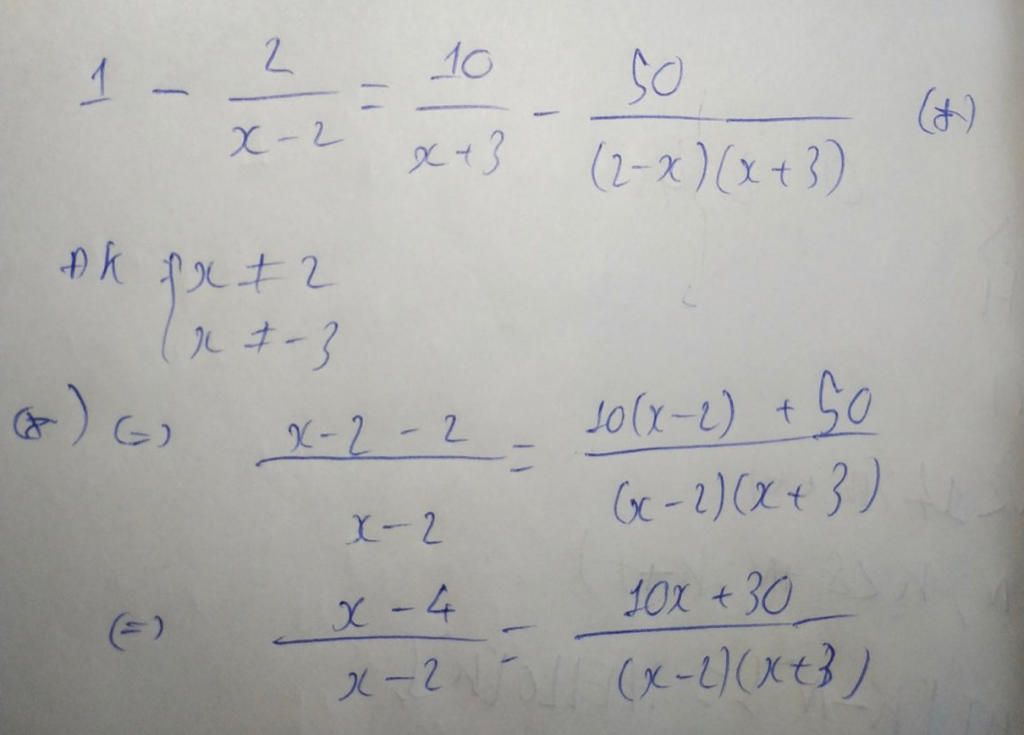 1 - 2/(x-2) = 10/(x+3) - 50/((2-x)(x+3)) (*)
ĐK { x ≠ 2
x ≠ -3
(*) (=) (x-2-2)/(x-2) = (10(x-2) + 50)/((x-2)(x+3))
(=) (x-4)/(x-2) = (10x+30)/((x-2)(x+3))